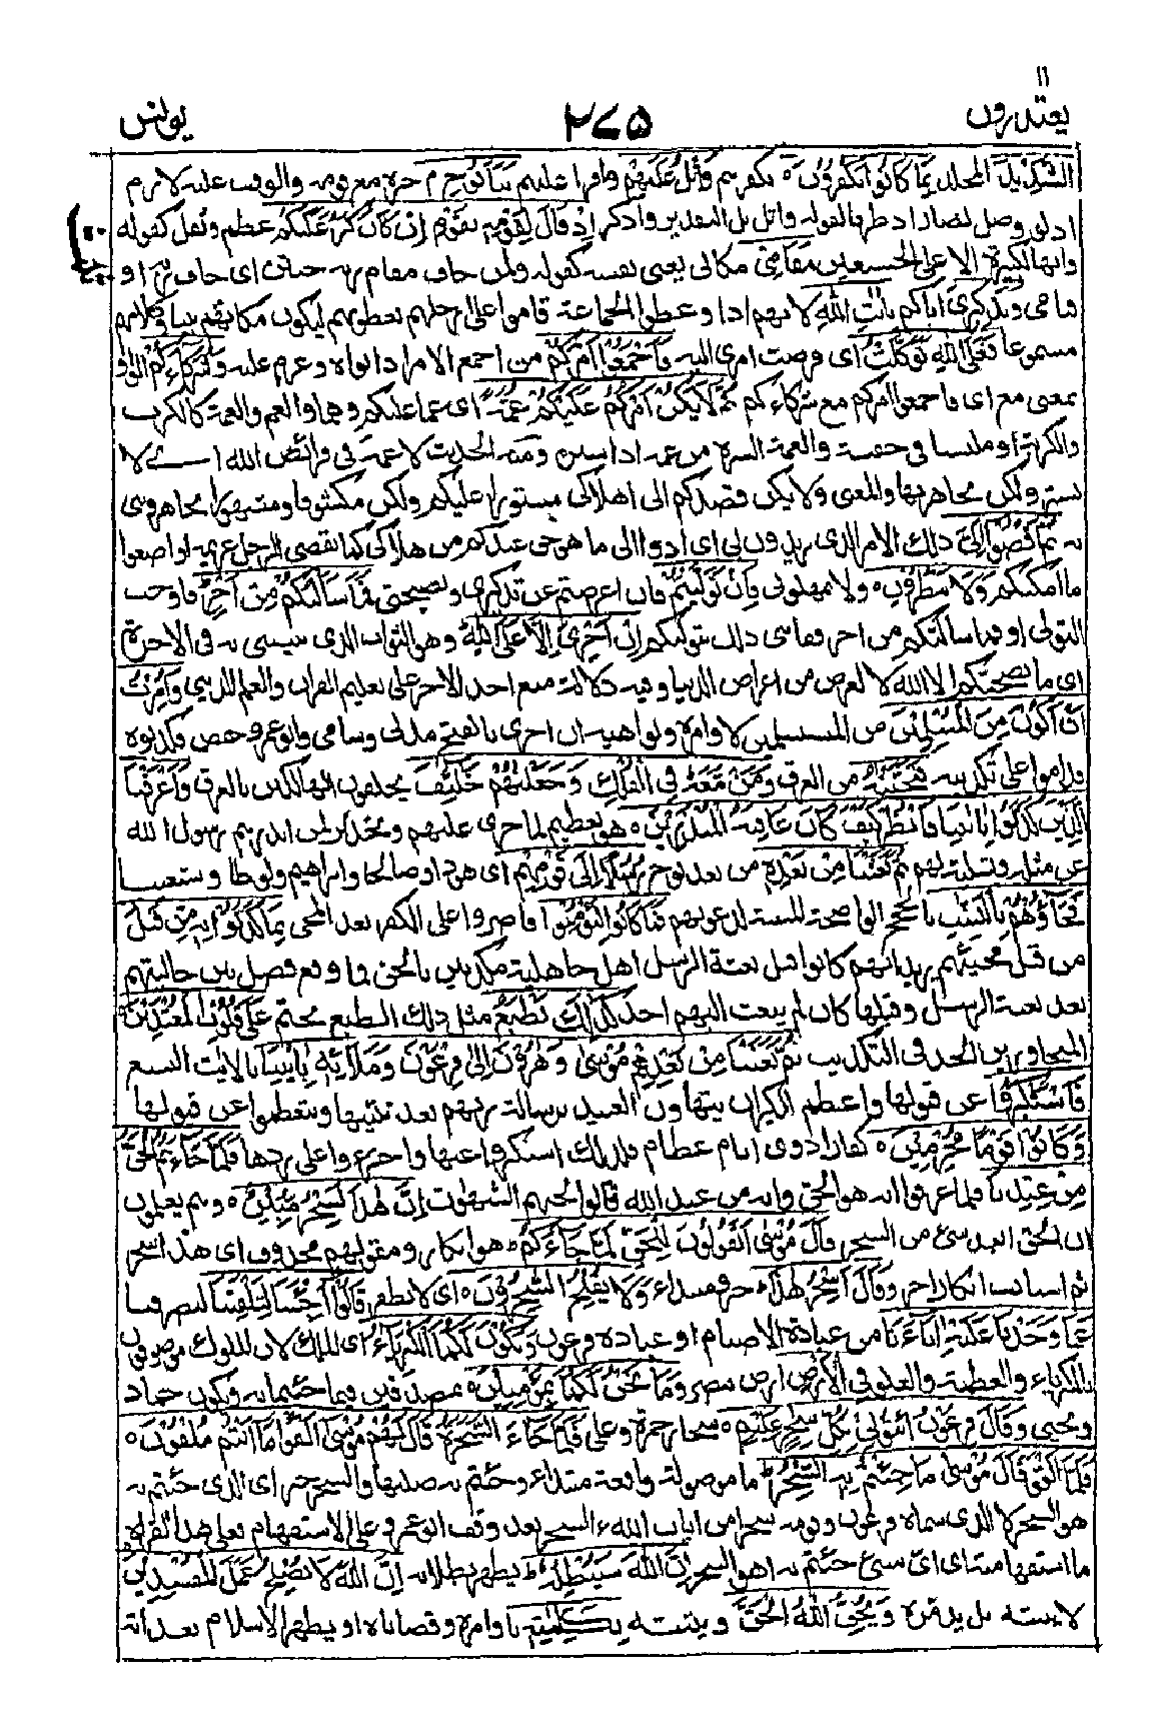 ۱۱
يعتذرون
۲۷۵
يونس
الشَّدِيْدَ المخلد بِمَا كَانُوْا يَكْفُرُوْنَ ه بكفرهم وَاتْلُ عَلَيْهِمْ واقرأ عليهم نَبَاَ نُوْحٍ م خبره مع قومه والوقف عليه لازم
اذ لو وصل لصار اذ ظرفا لقوله واتل بل التقدير واذكر اِذْ قَالَ لِقَوْمِهٖ يٰقَوْمِ اِنْ كَانَ كَبُرَ عَلَيْكُمْ عظم وثقل كقوله
وانها لكبيرة الا على الخشعين مَقَامِيْ مكاني يعني نفسه كقوله ولمن خاف مقام ربه جنتن اى خاف ربه او
قيامي وَتَذْكِيْرِيْ اياكم بِاٰيٰتِ اللّٰهِ لانهم اذا وعظوا الجماعة قاموا على ارجلهم يعظونهم ليكون مكانهم بينا وكلامهم
مسموعا فَعَلَى اللّٰهِ تَوَكَّلْتُ اى فوضت امرى اليه فَاَجْمِعُوْٓا اَمْرَكُمْ من اجمع الامر اذا نواه وعزم عليه وَشُرَكَآءَكُمْ الواو
بمعنى مع اى فاجمعوا امركم مع شركاءكم ثُمَّ لَا يَكُنْ اَمْرُكُمْ عَلَيْكُمْ غُمَّةً اى غما عليكم وهما والغم والغمة كالكرب
والكربة او ملتبسا في خفية والغمة السترة من غمه اذا ستره ومنه الحديث لا غمة في فرائض الله اى لا
تستر ولكن يجاهر بها والمعنى ولا يكن قصدكم الى اهلاكى مستورا عليكم ولكن مكشوفا ومشهورا تجاهروني
به ثُمَّ اقْضُوْٓا اِلَيَّ ذلك الامر الذي تريدون بي اى ادوا الى ما هو حق عندكم من هلاكى كما يقضى الرجل غريمه او اصنعوا
ما امكنكم وَلَا تُنْظِرُوْنِ ه ولا تمهلوني فَاِنْ تَوَلَّيْتُمْ فان اعرضتم عن تذكيري ونصيحتي فَمَا سَاَلْتُكُمْ مِّنْ اَجْرٍ فاوجب
التولى او فما سالتكم من اجر ففاتني ذلك بتوليكم اِنْ اَجْرِيَ اِلَّا عَلَى اللّٰهِ وهو الثواب الذي يثيبني به في الاخرة
اى ما نصحتكم الا لله لا لغرض من اغراض الدنيا وفيه دلالة منع اخذ الاجر على تعليم القران والعلم الديني وَاُمِرْتُ
اَنْ اَكُوْنَ مِنَ الْمُسْلِمِيْنَ من المستسلمين لاوامره ونواهيه ان اجري بالفتح مدني وشامي وابو عمرو وحفص فَكَذَّبُوْهُ
فداموا على تكذيبه فَنَجَّيْنٰهُ من الغرق وَمَنْ مَّعَهٗ فِي الْفُلْكِ وَجَعَلْنٰهُمْ خَلٰٓئِفَ يخلفون الهالكين بالغرق وَاَغْرَقْنَا
الَّذِيْنَ كَذَّبُوْا بِاٰيٰتِنَا فَانْظُرْ كَيْفَ كَانَ عَاقِبَةُ الْمُنْذَرِيْنَ ه هو تعظيم لما جرى عليهم وتحذير لمن انذرهم رسول الله
عن مثله وتسلية لهم ثُمَّ بَعَثْنَا مِنْ بَعْدِهٖ من بعد نوح رُسُلًا اِلٰى قَوْمِهِمْ اى هودا وصالحا وابراهيم ولوطا وشعيبا
فَجَآءُوْهُمْ بِالْبَيِّنٰتِ بالحجج الواضحة المثبتة لدعوتهم فَمَا كَانُوْا لِيُؤْمِنُوْا فاصروا على الكفر بعد المجئ بِمَا كَذَّبُوْا بِهٖ مِنْ قَبْلُ
من قبل مجيئهم يريد انهم كانوا قبل بعثة الرسل اهل جاهلية مكذبين بالحق فما وقع فصل بين حالتيهم
بعد بعثة الرسل وقبلها كان لم يبعث اليهم احد كَذٰلِكَ نَطْبَعُ مثل ذلك الطبع نختم عَلٰى قُلُوْبِ الْمُعْتَدِيْنَ
المجاوزين الحد في التكذيب ثُمَّ بَعَثْنَا مِنْ بَعْدِهِمْ مُّوْسٰى وَهٰرُوْنَ اِلٰى فِرْعَوْنَ وَمَلَا۟ئِهٖ بِاٰيٰتِنَا بالايت التسع
فَاسْتَكْبَرُوْا عن قبولها واعظم الكبر ان يتهاون العبيد برسالة ربهم بعد تبينها ويتعظموا عن قبولها
وَكَانُوْا قَوْمًا مُّجْرِمِيْنَ ه كفارا ذوى اثام عظام فلذلك استكبروا عنها واجترءوا على ردها فَلَمَّا جَآءَهُمُ الْحَقُّ
مِنْ عِنْدِنَا فلما عرفوا انه هو الحق وانه من عند الله قَالُوْا لحبهم الشهوت اِنَّ هٰذَا لَسِحْرٌ مُّبِيْنٌ ه وهم يعلمون
ان الحق ابعد شئ من السحر قَالَ مُوْسٰٓى اَتَقُوْلُوْنَ لِلْحَقِّ لَمَّا جَآءَكُمْ ط هو انكار ومقولهم محذوف اى هذا سحر
ثم استانف انكارا اخر وقال اَسِحْرٌ هٰذَا ط خبر ومبتداء وَلَا يُفْلِحُ السّٰحِرُوْنَ ه اى لا يظفر قَالُوْٓا اَجِئْتَنَا لِتَلْفِتَنَا لتصرفنا
عَمَّا وَجَدْنَا عَلَيْهِ اٰبَآءَنَا من عبادة الاصنام او عبادة فرعون وَتَكُوْنَ لَكُمَا الْكِبْرِيَآءُ اى الملك لان الملوك موصوفون
بالكبرياء والعظمة والعلو فِي الْاَرْضِ ارض مصر وَمَا نَحْنُ لَكُمَا بِمُؤْمِنِيْنَ ه بمصدقين فيما جئتما به ويكون حماد
ويحيى وَقَالَ فِرْعَوْنُ ائْتُوْنِيْ بِكُلِّ سٰحِرٍ عَلِيْمٍ ه سحار حمزة وعلى فَلَمَّا جَآءَ السَّحَرَةُ قَالَ لَهُمْ مُّوْسٰٓى اَلْقُوْا مَآ اَنْتُمْ مُّلْقُوْنَ ه
فَلَمَّآ اَلْقَوْا قَالَ مُوْسٰى مَا جِئْتُمْ بِهِ السِّحْرُ ط ما موصولة واقعة مبتداء وجئتم به صلتها والسحر خبر اى الذي جئتم به
هو السحر لا الذي سماه فرعون وقومه سحرا من ايات الله ءالسحر بعد وقف ابو عمرو على الاستفهام فعلى هذه القراءة
ما استفهامية اى اى شئ جئتم به اهو السحر اِنَّ اللّٰهَ سَيُبْطِلُهٗ ط يظهر بطلانه اِنَّ اللّٰهَ لَا يُصْلِحُ عَمَلَ الْمُفْسِدِيْنَ
لا يثبته بل يدمره وَيُحِقُّ اللّٰهُ الْحَقَّ ويثبته بِكَلِمٰتِهٖ باوامره وقضاياه او يظهر الاسلام بعداته